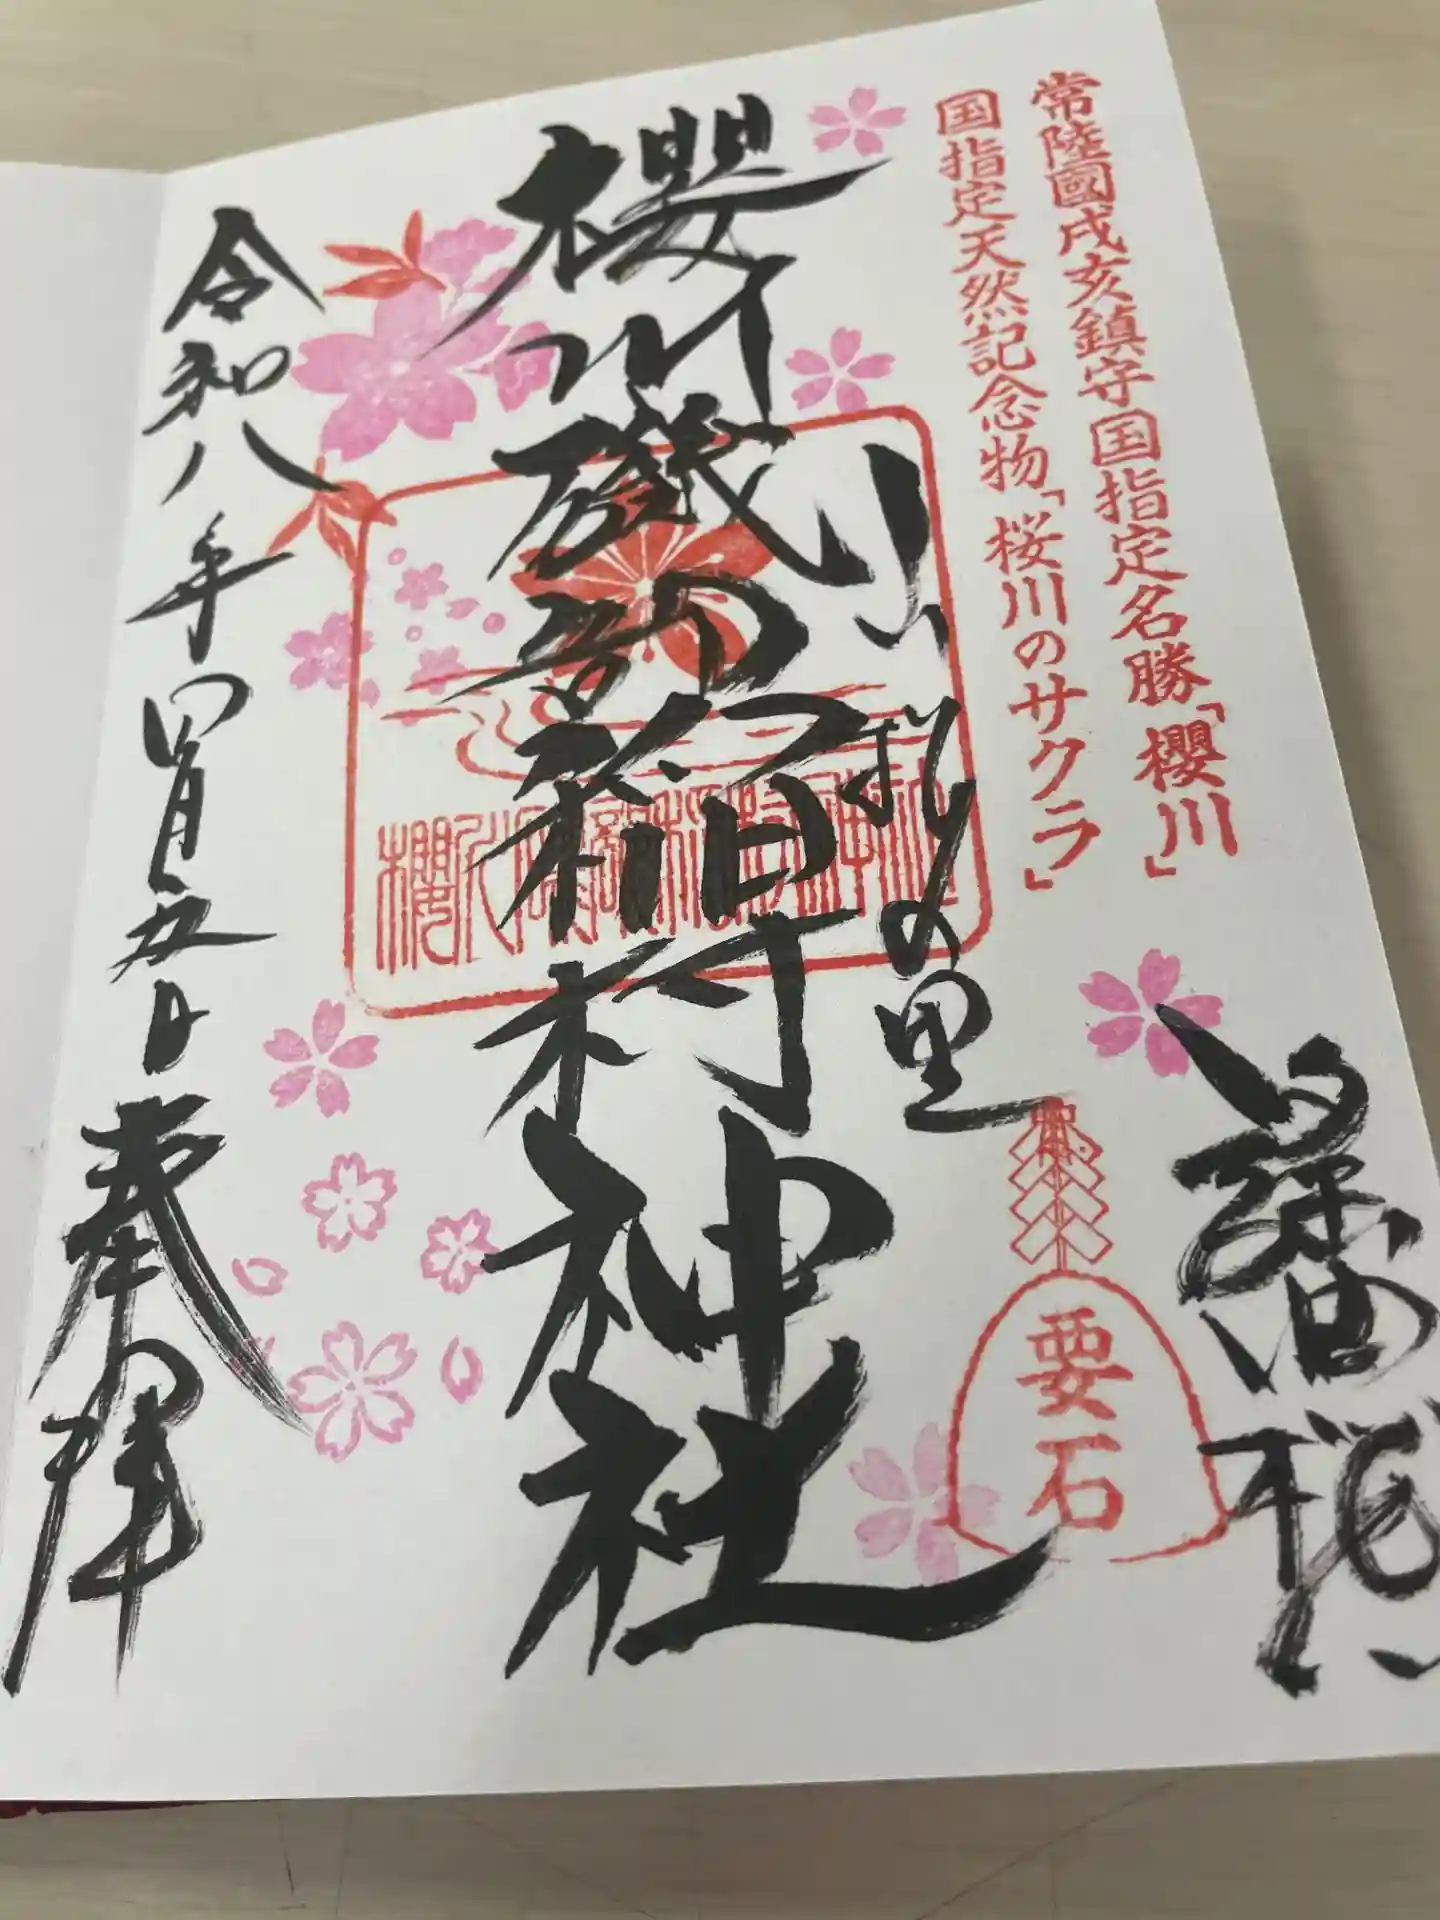 常陸國戌亥鎮守国指定名勝「櫻川」
国指定天然記念物「桜川のサクラ」
謡曲
要石
山桜の里
櫻川磯部稲村神社
櫻川磯部稲村神社
令和八年四月五日
奉拝